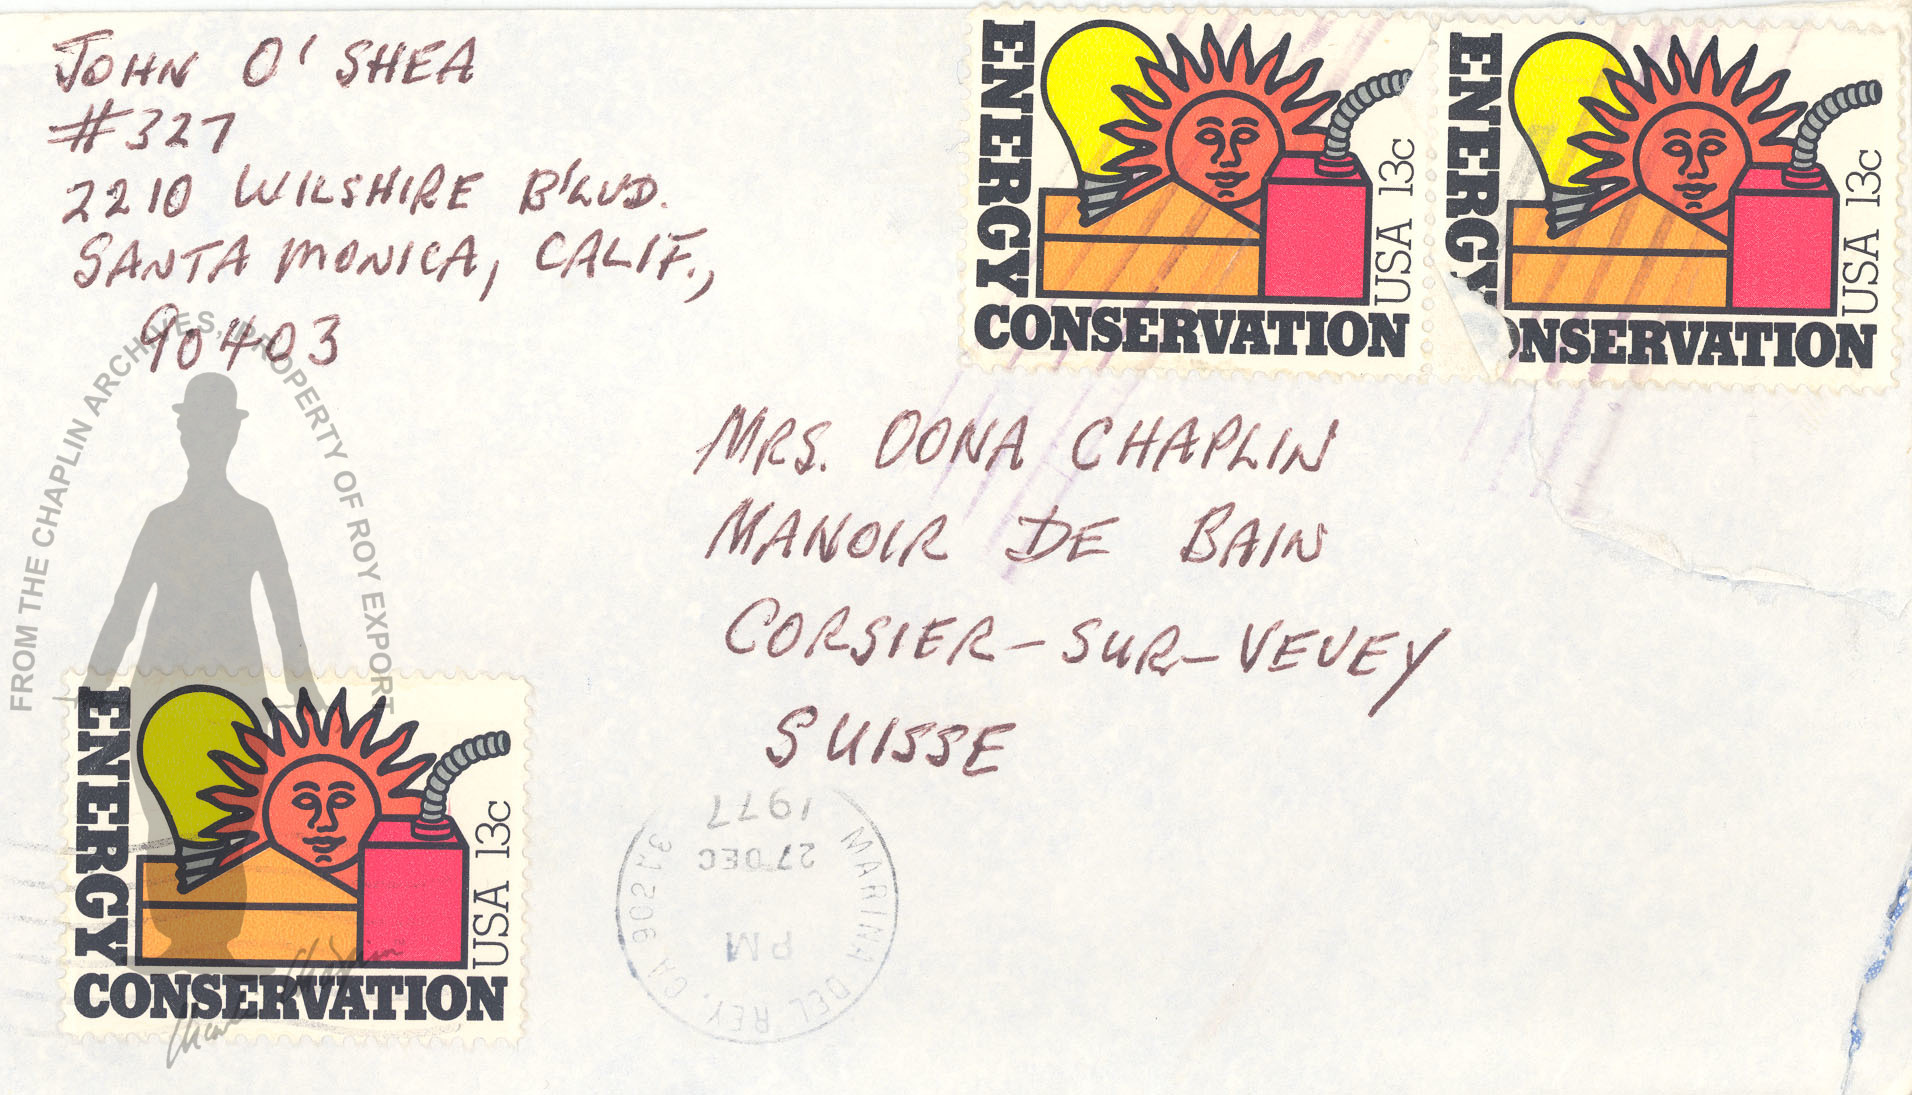 JOHN O' SHEA
#327
2210 WILSHIRE B'LVD.
SANTA MONICA, CALIF.,
90403
ENERGY
CONSERVATION
USA 13c
ENERGY
ONSERVATION
USA 13c
MRS. OONA CHAPLIN
MANOIR DE BAIN
CORSIER-SUR-VEVEY
SUISSE
FROM THE CHAPLIN ARCHIVES, PROPERTY OF ROY EXPORT
ENERGY
CONSERVATION
USA 13c
Charlie Chaplin
MARINA DEL REY, CA 90291
PM
27 DEC
1977